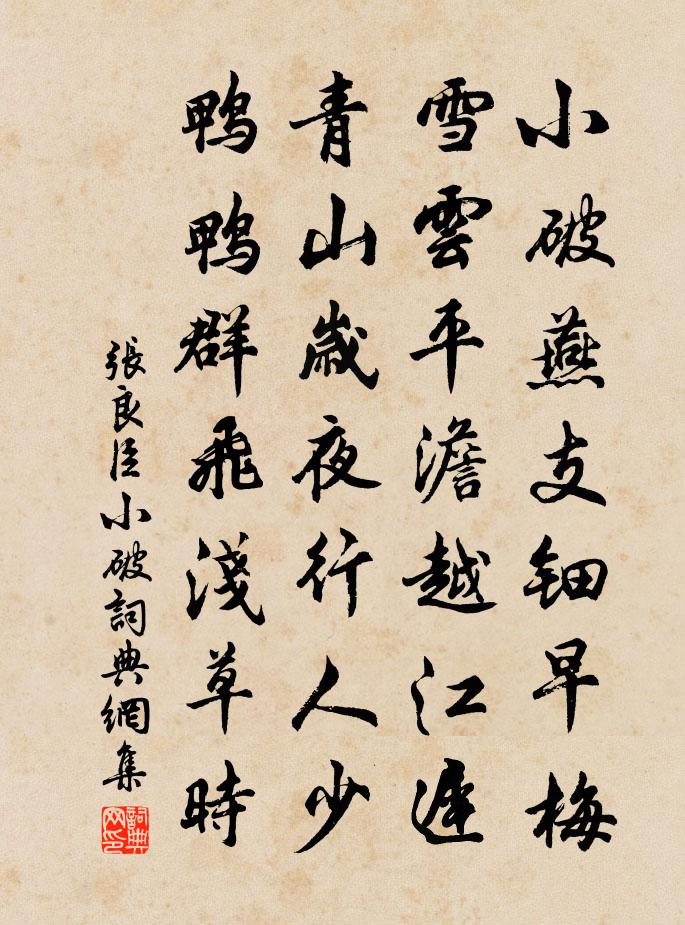 小破燕支鈿早梅
雪雲平澹越江遲
青山歲夜行人少
鴨鴨群飛淺草時
張良臣小破詞典網集
詞典网印